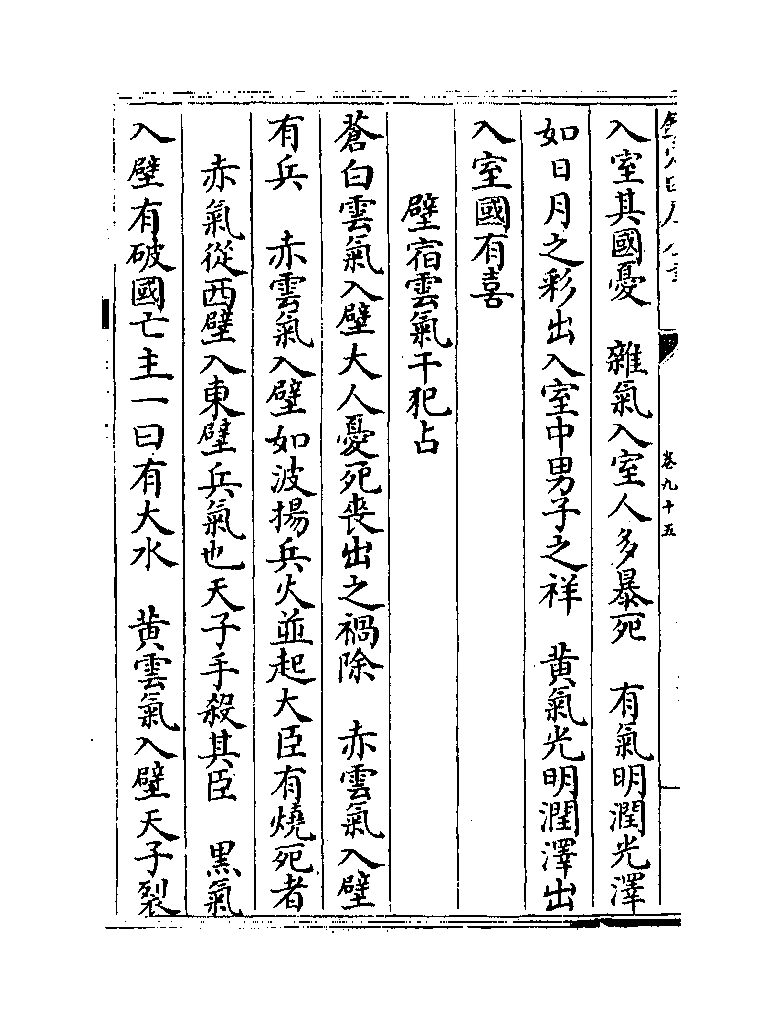 卷九十五
入室其國憂　雜氣入室人多暴死　有氣明潤光澤
如日月之彩出入室中男子之祥　黄氣光明潤澤出
入室國有喜
壁宿雲氣干犯占
蒼白雲氣入壁大人憂死喪出之禍除　赤雲氣入壁
有兵　赤雲氣入壁如波揚兵火並起大臣有燒死者
赤氣從西壁入東壁兵氣也天子手殺其臣　黑氣
入壁有破國亡主一曰有大水　黄雲氣入壁天子裂